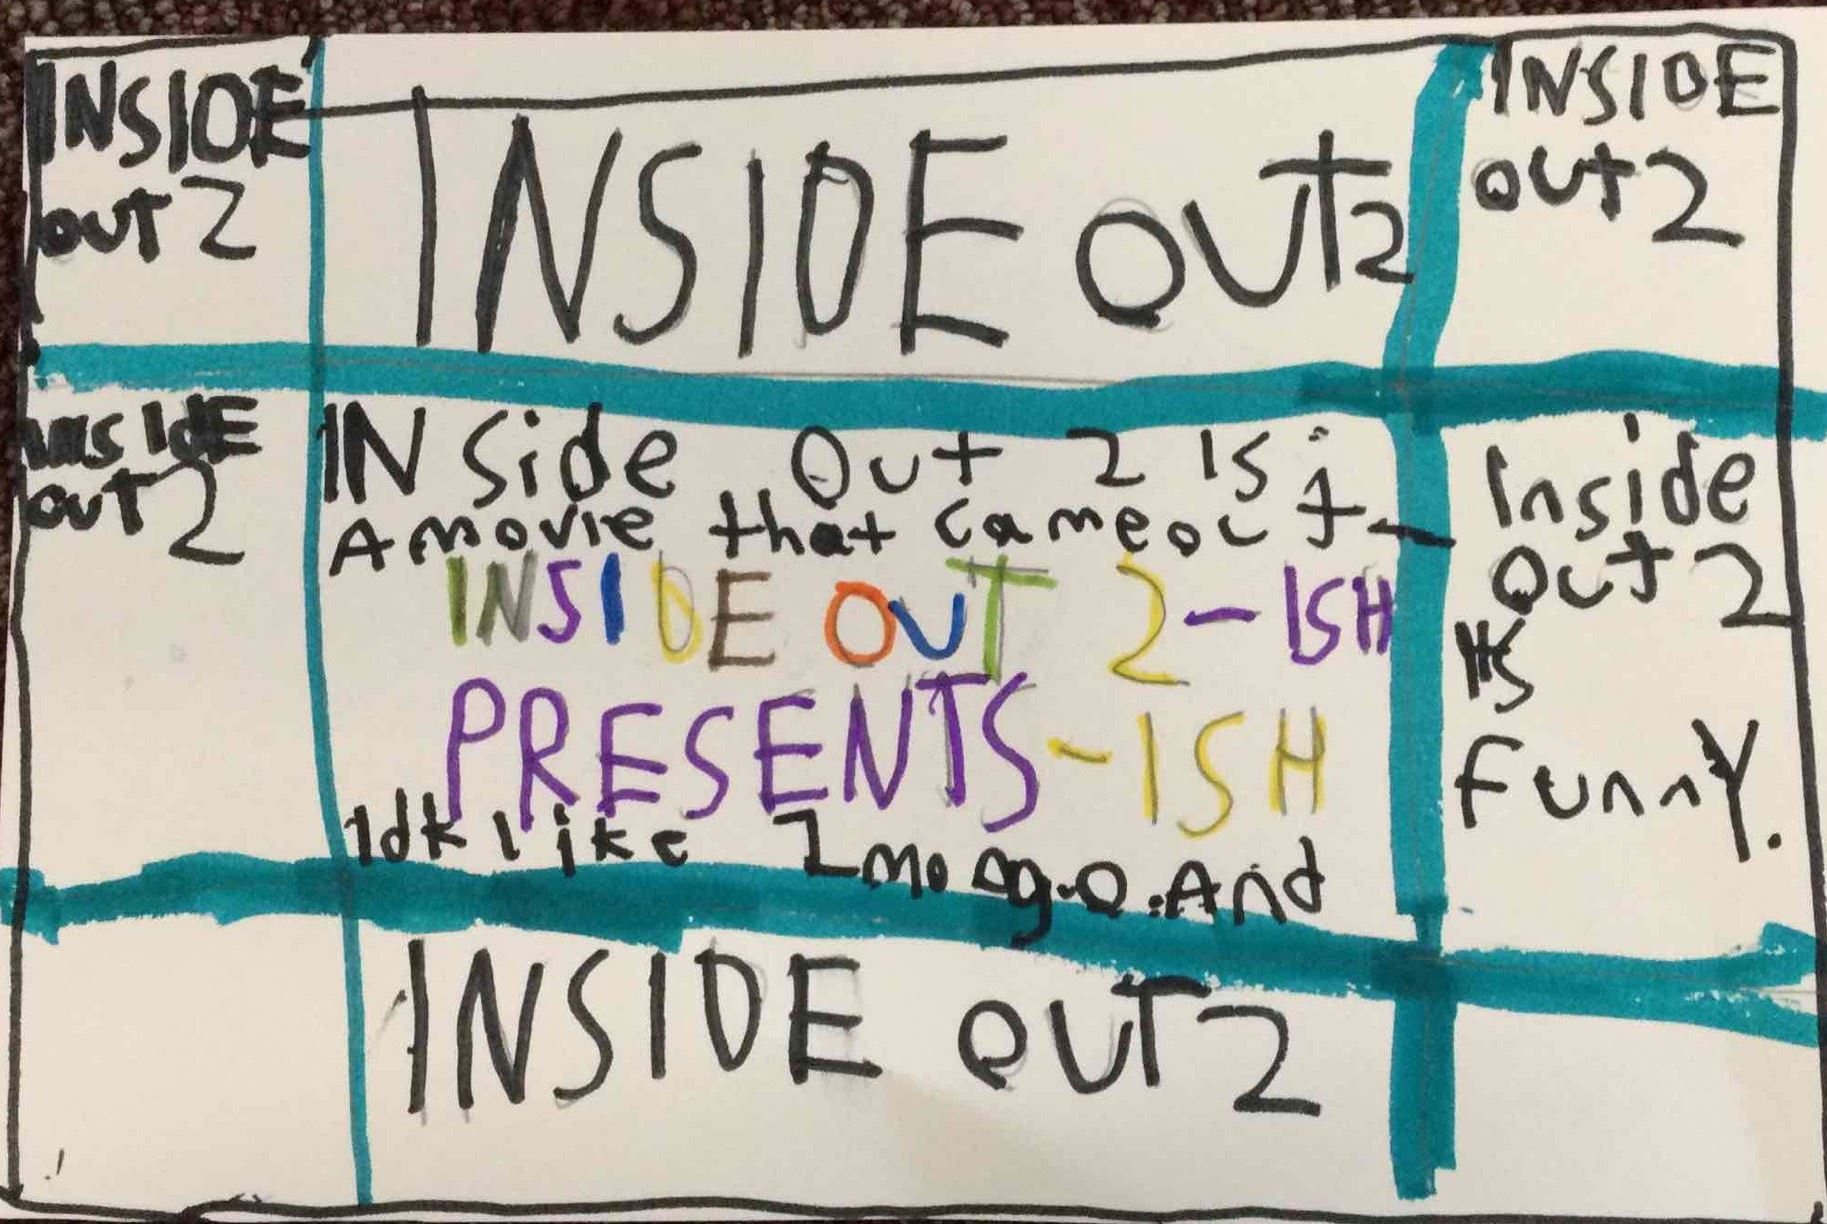 INSIDE
out 2
INSIDE OUT 2
INSIDE
out 2
INSIDE
out 2
INside Out 2 is
A movie that came out
INSIDE OUT 2-ISH
PRESENTS-ISH
Idk like 2mo ago. And
Inside
Out 2
is
Funny.
INSIDE OUT 2